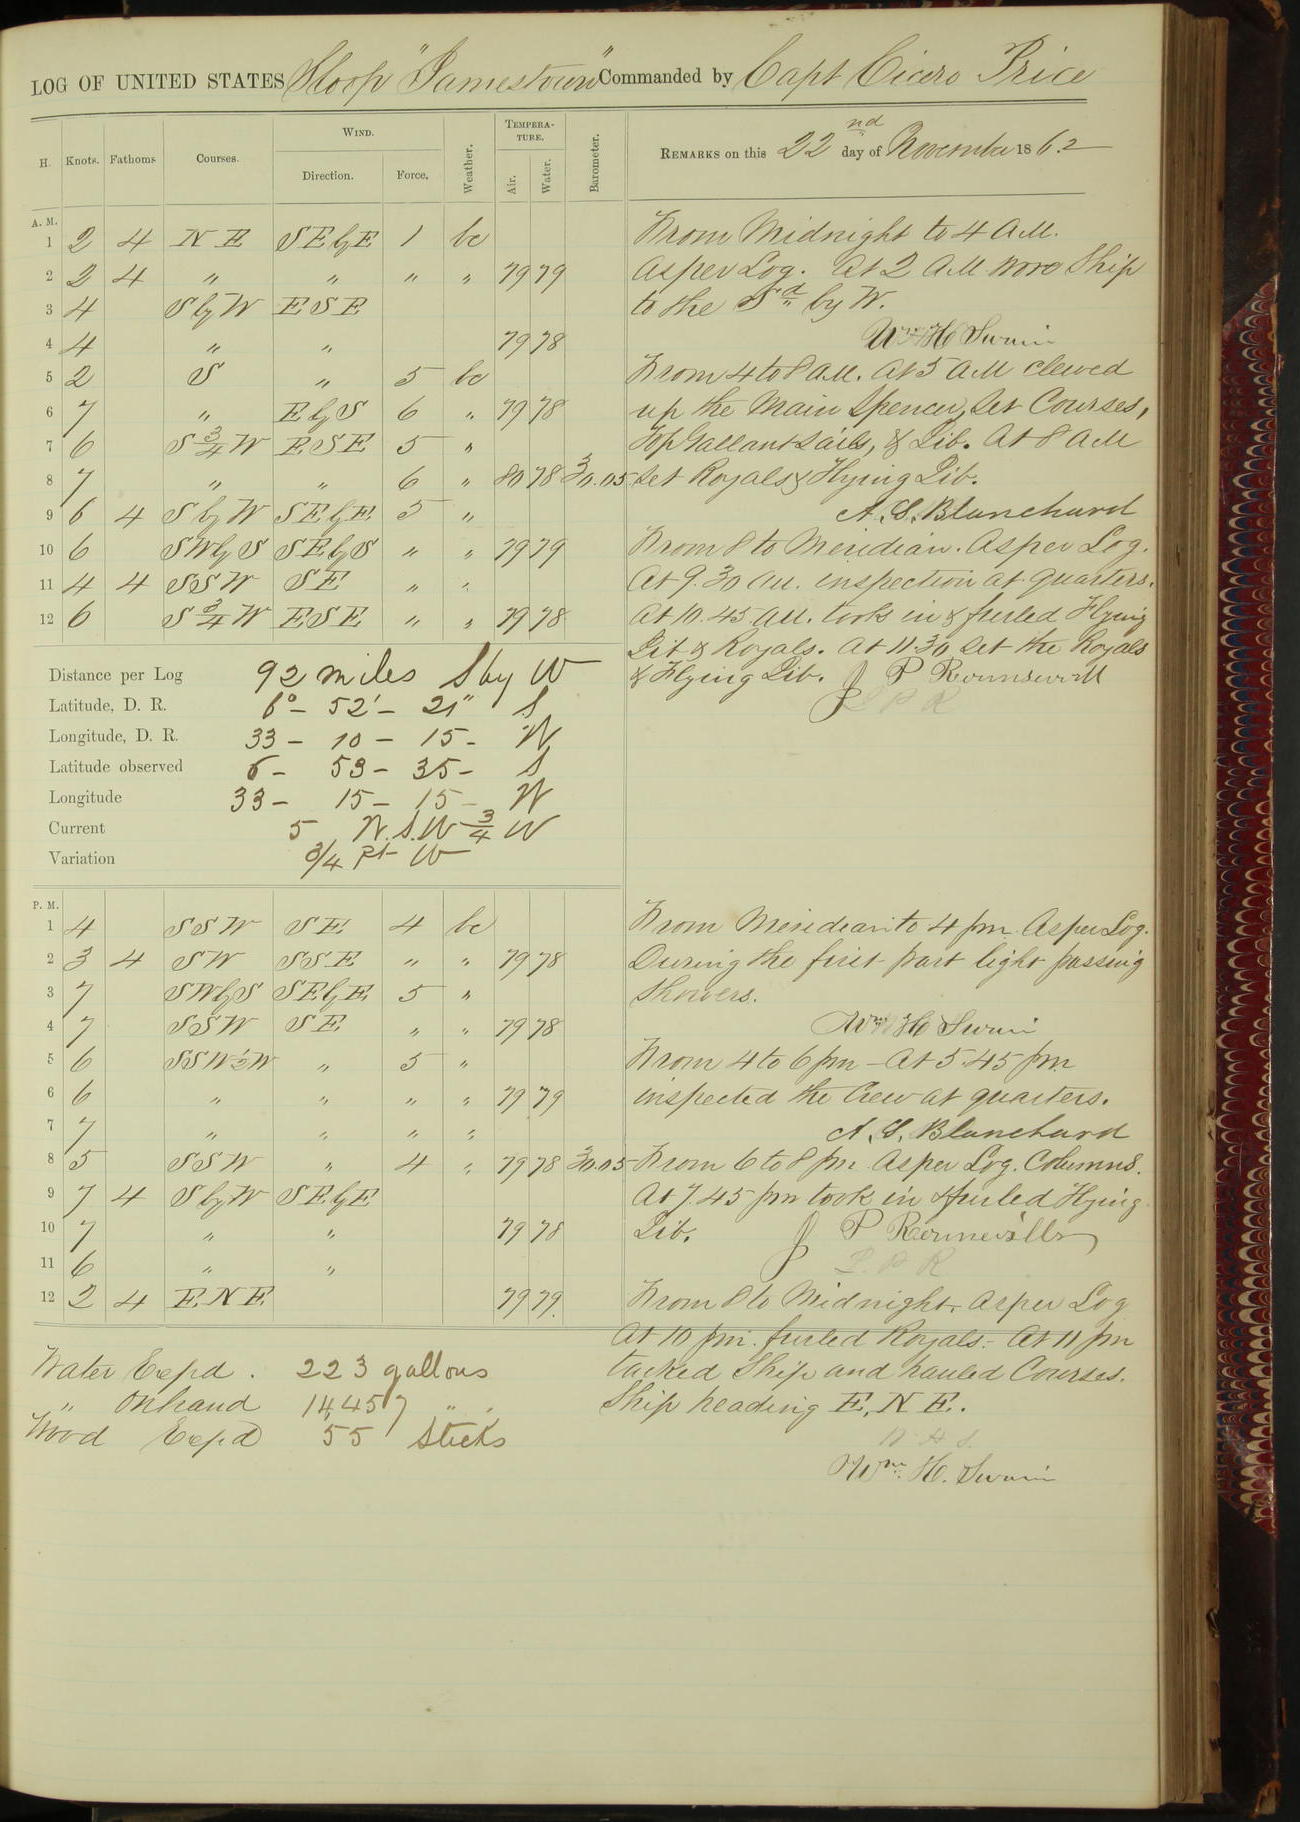 LOG OF UNITED STATES Sloop "Jamestown" Commanded by Capt Cicero Price
H. Knots. Fathoms Courses. WIND. Direction. Force. Weather. TEMPERATURE. Air. Water. Barometer. REMARKS on this 22nd day of November 1862
A. M.
1 2 4 N E SEbyE 1 bc
2 2 4 " " " " 79 79
3 4 SbyW ESE
4 4 " " 79 78
5 2 S " 5 bc
6 7 " EbyS 6 " 79 78
7 6 S 3/4 W ESE 5 "
8 7 " " 6 " 80 78 30.05
9 6 4 SbyW SEbyE 5 "
10 6 SWbyS SEbyS " " 79 79
11 4 4 SSW SE " "
12 6 S 3/4 W ESE " " 79 78
From Midnight to 4 A.M.
As per Log. At 2 A.M. wore Ship
to the Sd by W.
Wm H Swain
From 4 to 8 A.M. At 5 A.M clewed
up the Main Spencer, set Courses,
TopGallantsails, & Jib. At 8 A.M
set Royals & Flying Jib.
A. S. Blanchard
From 8 to Meridian. As per Log.
At 9.30 a.m. inspection at quarters.
At 10.45 a.m. took in & furled Flying
Jib & Royals. At 11.30 set the Royals
& Flying Jib. J P Rounsevill
J P R
Distance per Log 92 miles S by W
Latitude, D. R. 6° - 52' - 21" S
Longitude, D. R. 33 - 10 - 15 - W
Latitude observed 6 - 53 - 35 - S
Longitude 33 - 15 - 15 - W
Current 5 W.S.W 3/4 W
Variation 3/4 Pt W
P. M.
1 4 SSW SE 4 bc
2 3 4 SW SSE " " 79 78
3 7 SWbyS SEbyE 5 "
4 7 SSW SE " " 79 78
5 6 SSW 1/2 W " 5 "
6 6 " " " " 79 79
7 7 " " " "
8 5 SSW " 4 " 79 78 30.05
9 7 4 SbyW SEbyE
10 7 " " 79 78
11 6 " "
12 2 4 ENE 79 79.
From Meridian to 4 pm. As per Log.
During the first part light passing
showers.
Wm H Swain
From 4 to 6 pm - At 5.45 pm
inspected the Crew at quarters.
A. S. Blanchard
From 6 to 8 pm. As per Log. Columns.
At 7.45 pm took in & furled Flying
Jib. J P Rounsevill
J. P. R
From 8 to Midnight, As per Log
At 10 pm. furled Royals. - At 11 pm
tacked Ship and hauled Courses.
Ship heading E, N E.
W. H. S.
Wm. H. Swain
Water Expd. 223 gallons
" On hand 14,457 " "
Wood Expd 55 Sticks